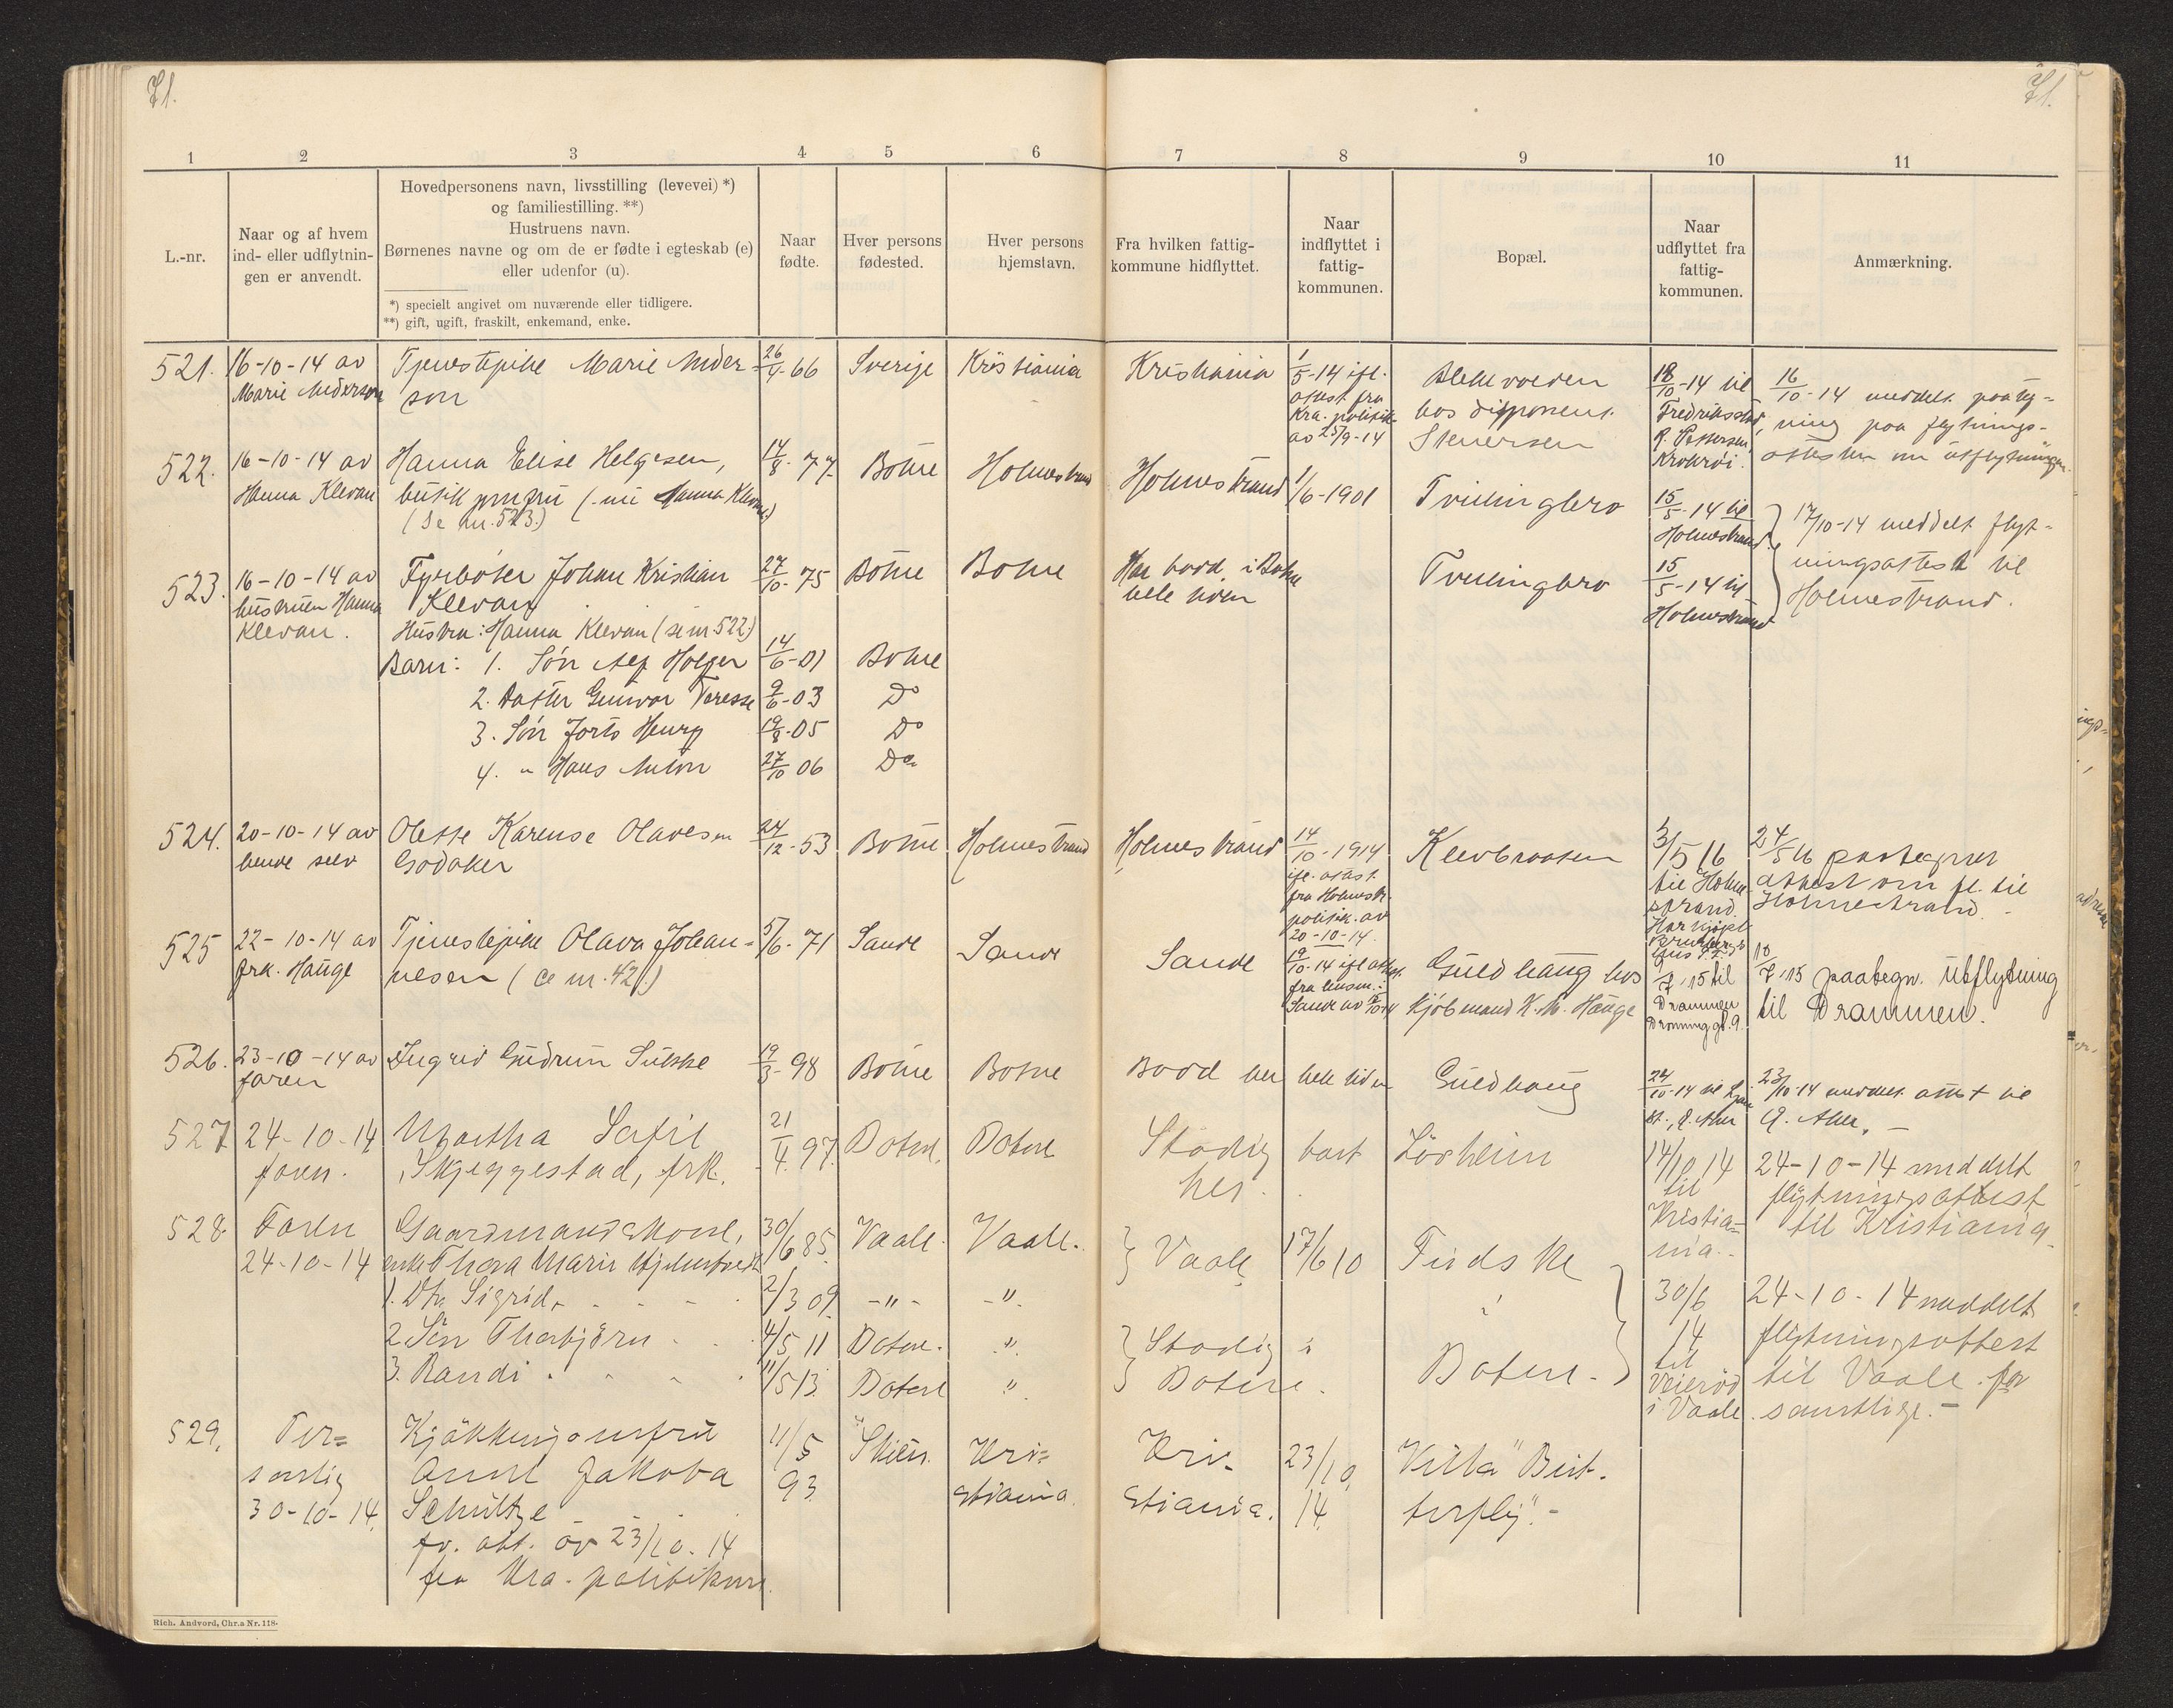 71.
71.
1 2 3 4 5 6 7 8 9 10 11
L.-nr.
Naar og af hvem
ind- eller udflytnin-
gen er anvendt.
Hovedpersonens navn, livsstilling (levevei) *)
og familiestilling. **)
Hustruens navn.
Børnenes navne og om de er fødte i egteskab (e)
eller udenfor (u).
*) specielt angivet om nuværende eller tidligere.
**) gift, ugift, fraskilt, enkemand, enke.
Naar
fødte.
Hver persons
fødested.
Hver persons
hjemstavn.
Fra hvilken fattig-
kommune hidflyttet.
Naar
indflyttet i
fattig-
kommunen.
Bopæl.
Naar
udflyttet fra
fattig-
kommunen.
Anmærkning.
521.
16-10-14 av
Marie Anderson
Tjenestepike Marie Ander-
son
26/4-66
Sverige
Kristiania
Kristiania
1/5-14 ifl.
attest fra
Kra. politik.
av 25/9-14
Blekevolden
hos disponent
Stenersen
18/10-14 til
Fredriksstad,
R. Pettersen
16/10-14 meddelt paateg-
ning paa flytnings-
attesten om utflytningen.
522.
16-10-14 av
Hanna Klevan
Hanna Elise Helgesen,
butikjomfru (nu Hanna Klevan)
(se nr. 523.)
14/8-77
Botne
Holmestrand
Holmestrand
1/6-1901
Tvillingbro
15/5-14 til
Holmestrand
17/10-14 meddelt flyt-
ningsattest til
Holmestrand.
523.
16-10-14 av
hustruen Hanna
Klevan.
Fyrbøter Johan Kristian
Klevan
Hustru: Hanna Klevan (se nr 522)
Barn: 1. Søn Alf Holger
2. Datter Gunvor Terese
3. Søn
4. " Hans Anton
27/10-75
14/6-01
9/6-03
19/8-05
27/10 06
Botne
Botne
Do
Do
Do
Botne
Har bodd i Botne
hele tiden
Tvillingbro
15/5-14 til
Holmestrand
524.
20-10-14 av
hende selv
Olette Karense Olavesen
Godaker
24/12-53
Botne
Holmestrand
Holmestrand
14/10-1914
ifl. attest
fra Holmestr.
politik. av
20-10-14.
Klevbraaten
3/5 16
til Holme-
strand.
Har kjøpt
24/5 16 paategnet
attest om fl. til
Holmestrand. -
525
22-10-14 av
frk. Hauge
Tjenestepike Olava Johan-
nesen (se nr. 421.)
5/6-71
Sande
Sande
Sande
19/10-14 ifl attest
fra lensm. i
Sande av
Guldhaug hos
kjøbmand K. M. Hauge
7.15 til
Drammen
Dronninggt. 9.
7.15 paategn. utflytning
til Drammen.
526.
23-10-14 av
faren
Ingrid Gudrun Sulske
19/3-98
Botne
Botne
Bodd her hele tiden
Guldhaug
24/10-14 til
st., Ø. Aker
23/10-14 meddelt attest til
Ø. Aker. -
527
24-10-14
faren.
Martha Sofie
Skjeggestad, frk.
21/4 97
Botne.
Botne
Stadig bort
her.
Lörheim
14/10 14
til
Kristia=
nia.
24-10-14 meddelt
flytningsattest
til Kristiania.
528
Faren
24-10-14
Gaardmandskone,
enke Thora Marie
1. Dtr. Sigrid
2. Sön Thorbjörn
3. Randi
30/6 85
2/3 09
4/5 11
11/5 13
Vaale.
-"-
Botne.
Botne
Vaale.
-"-
"
"
Vaale
Stadig i
Botne.
17/6 10
Fuidske
i
Botne.
30/6
14
til
Veieröd
i Vaale
24-10-14 meddelt
flytningsattest
til Vaale for
samtlige. -
529.
Per=
sonlig
30-10-14.
Kjökkenjomfru
Anne Jakoba
Schultze
fr. att. av 23/10-14
fra Kra. politikam.
11/5
93
Skien.
Kri=
stiania.
Kri-
stiania.
23/10
14.
Villa "But-
terfly". -
Rich. Andvord, Chr.a Nr. 118.